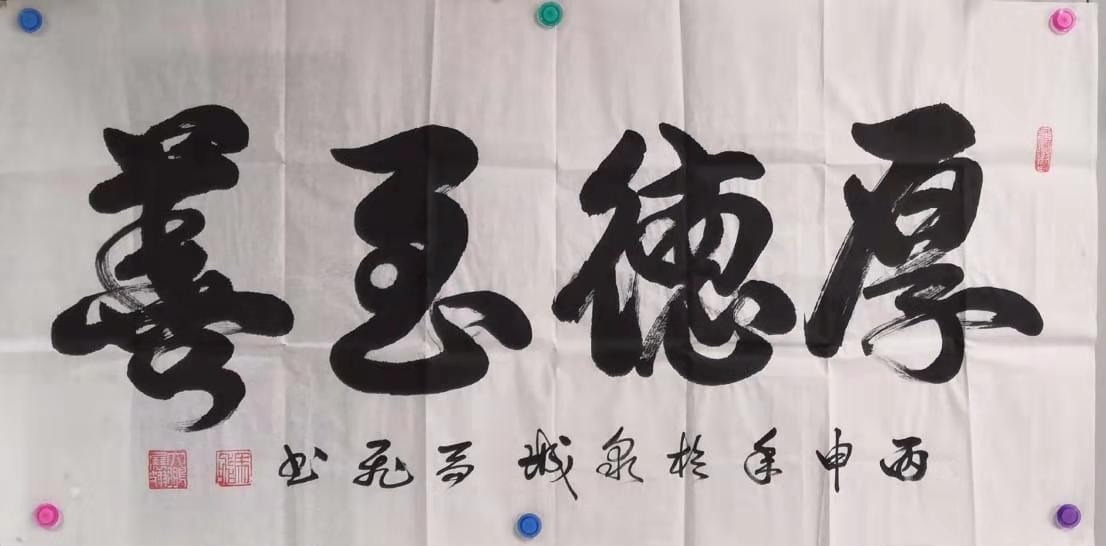 厚德至善
丙申年於泉城 飛书